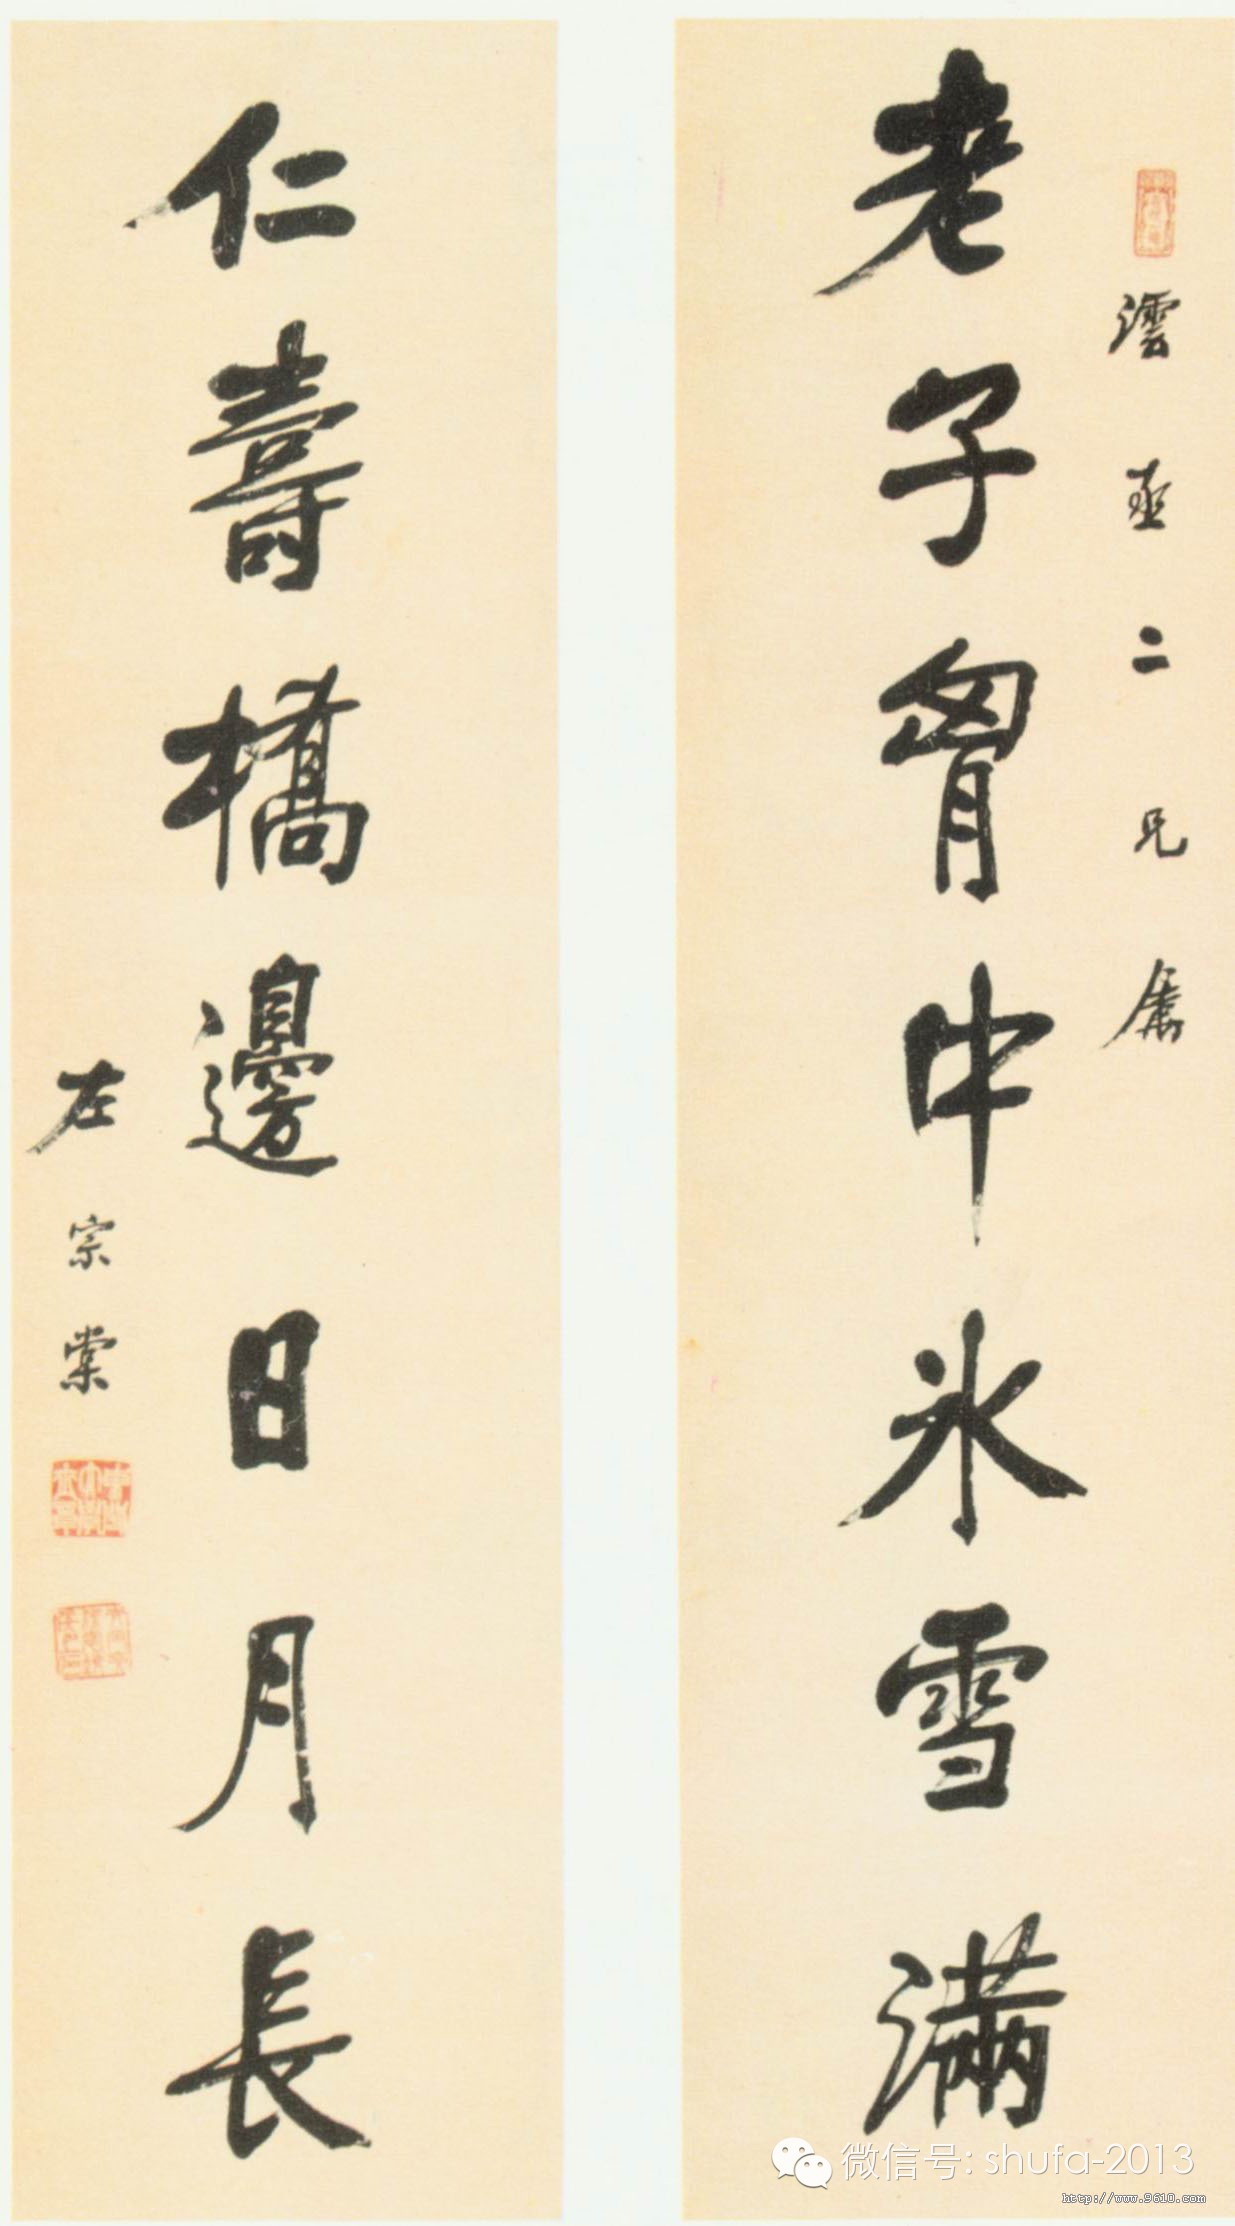 澐亟二兄屬
老子胷中冰雪滿
仁壽橋邊日月長
左宗棠
微信号: shufa-2013
http://www.9610.com